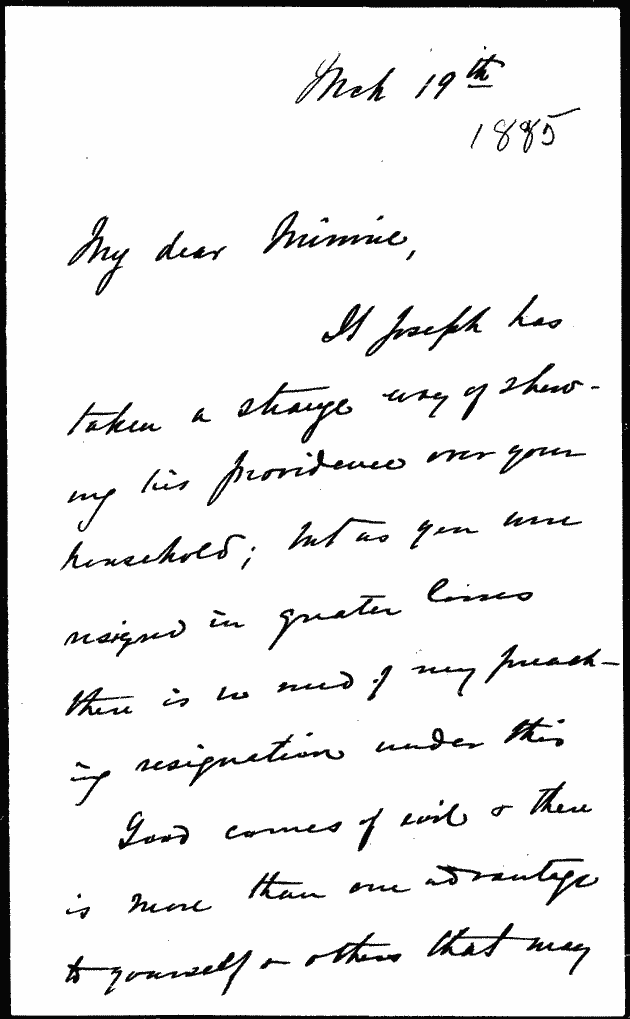 Mch 19th
1885
My dear Minnie,
St Joseph has
taken a strange way of shew-
ing his providence over your
household; but as you were
resigned in greater losses
there is no need of my preach-
ing resignation under this
Good comes of evil & there
is more than one advantage
to yourself or others that may